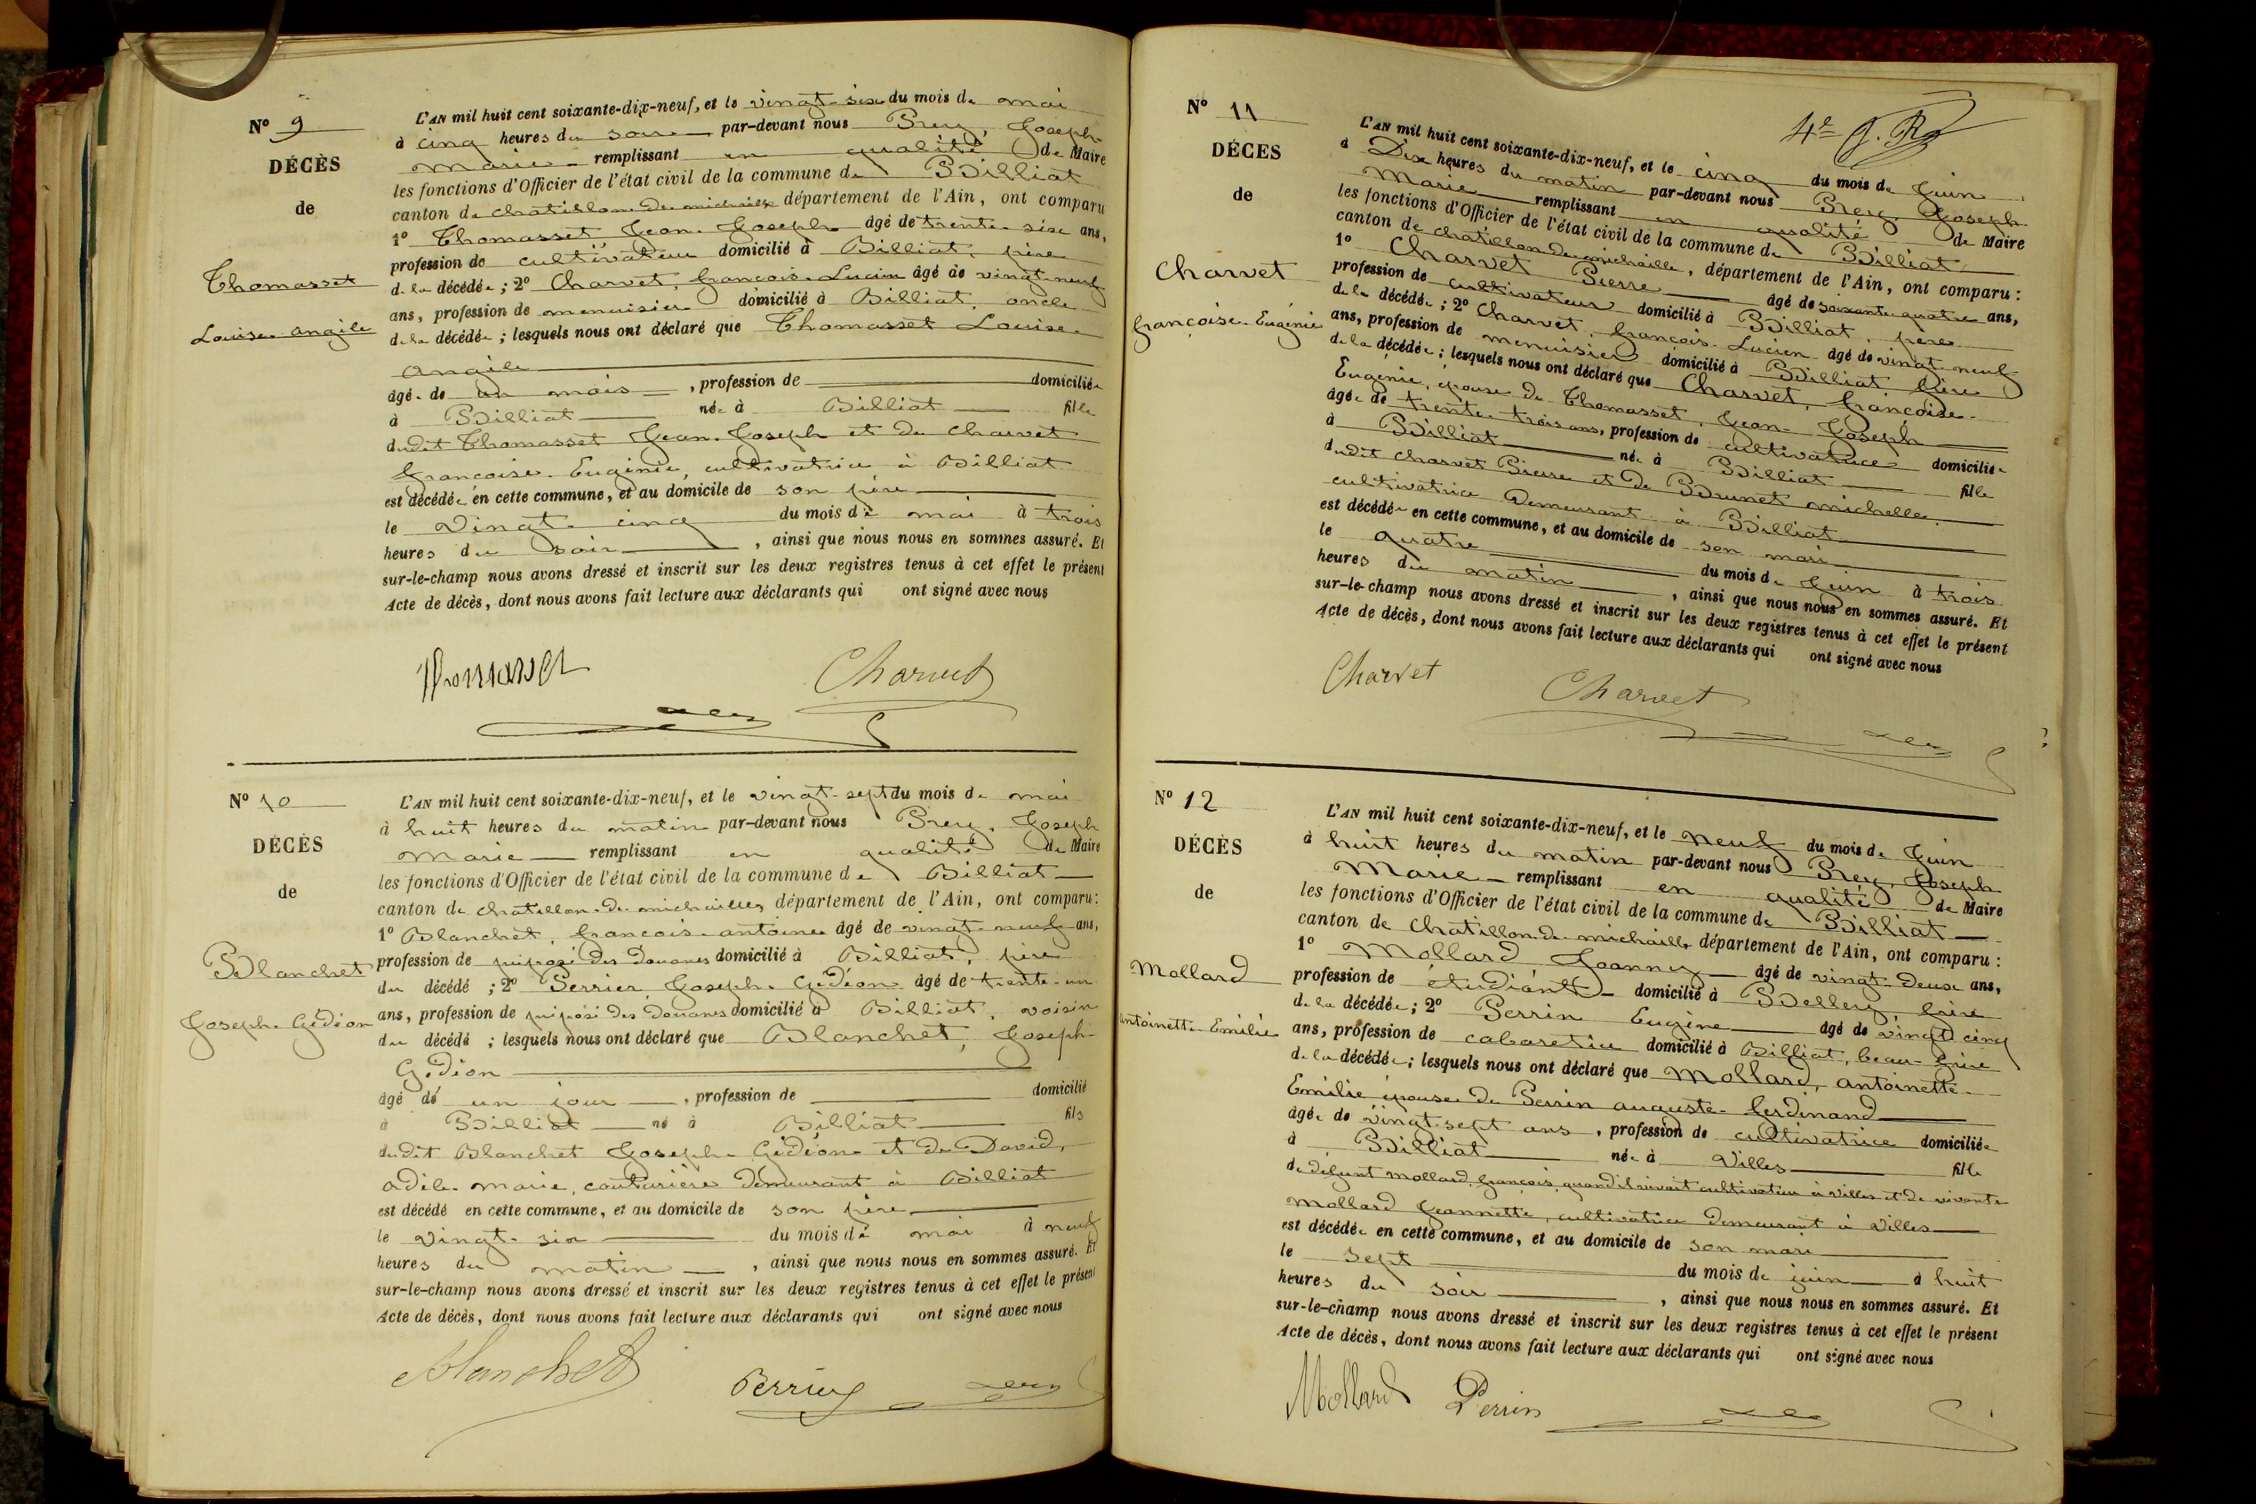 N° 9
DÉCÈS
de
Thomasset
Louise Angèle
L'AN mil huit cent soixante-dix-neuf, et le vingt-six du mois de mai
à cinq heures du soir par-devant nous Prey, Joseph
Marie remplissant en qualité de Maire
les fonctions d'Officier de l'état civil de la commune de Billiat
canton de Chatillon-de-michaille département de l'Ain, ont comparu
1° Thomasset Jean-Joseph âgé de trente-six ans,
profession de cultivateur domicilié à Billiat, père
de la décédée; 2° Charvet, françois-Lucien âgé de vingt-neuf
ans, profession de menuisier domicilié à Billiat, oncle
de la décédée; lesquels nous ont déclaré que Thomasset Louise-
Angèle
âgée de un mois, profession de domiciliée
à Billiat née à Billiat fille
dudit Thomasset Jean-Joseph et de Charvet
françoise-Eugénie, cultivatrice à Billiat
est décédée en cette commune, et au domicile de son père
le vingt-cinq du mois de mai à trois
heures du soir, ainsi que nous nous en sommes assuré. Et
sur-le-champ nous avons dressé et inscrit sur les deux registres tenus à cet effet le présent
Acte de décès, dont nous avons fait lecture aux déclarants qui ont signé avec nous
Thomasset Charvet
N° 10
DÉCÈS
de
Blanchet
Joseph-Gédéon
L'AN mil huit cent soixante-dix-neuf, et le vingt-sept du mois de mai
à huit heures du matin par-devant nous Prey, Joseph
Marie remplissant en qualité de Maire
les fonctions d'Officier de l'état civil de la commune de Billiat
canton de chatillon-de-michaille, département de l'Ain, ont comparu:
1° Blanchet, françois-antoine âgé de vingt-neuf ans,
profession de préposé des Douanes domicilié à Billiat, père
du décédé; 2° Perrier Joseph-Gédéon âgé de trente-un
ans, profession de préposé des Douanes domicilié à Billiat, voisin
du décédé; lesquels nous ont déclaré que Blanchet, Joseph-
Gédéon
âgé de un jour, profession de domicilié
à Billiat né à Billiat fils
dudit Blanchet Joseph-Gédéon et de David,
Adèle-marie, couturière demeurant à Billiat
est décédé en cette commune, et au domicile de son père
le vingt-six du mois de mai à neuf
heures du matin, ainsi que nous nous en sommes assuré. Et
sur-le-champ nous avons dressé et inscrit sur les deux registres tenus à cet effet le présent
Acte de décès, dont nous avons fait lecture aux déclarants qui ont signé avec nous
Blanchet Perrier
N° 11
DÉCES
de
Charvet
françoise-Eugénie
L'AN mil huit cent soixante-dix-neuf, et le cinq du mois de Juin
à Dix heures du matin par-devant nous Prey, Joseph
Marie remplissant en qualité de Maire
les fonctions d'Officier de l'état civil de la commune de Billiat
canton de chatillon-de-michaille, département de l'Ain, ont comparu:
1° Charvet Pierre âgé de soixante-quatre ans,
profession de cultivateur domicilié à Billiat, père
de la décédée; 2° Charvet, françois-Lucien âgé de vingt-neuf
ans, profession de menuisier domicilié à Billiat frère
de la décédée; lesquels nous ont déclaré que Charvet, françoise-
Eugénie, épouse de Thomasset, Jean-Joseph
âgée de trente-trois ans, profession de cultivatrice domiciliée
à Billiat née à Billiat fille
dudit Charvet Pierre et de Brunet michelle,
cultivatrice demeurant à Billiat
est décédée en cette commune, et au domicile de son mari
le quatre du mois de Juin à trois
heures du matin, ainsi que nous nous en sommes assuré. Et
sur-le-champ nous avons dressé et inscrit sur les deux registres tenus à cet effet le présent
Acte de décès, dont nous avons fait lecture aux déclarants qui ont signé avec nous
Charvet Charvet
N° 12
DÉCÈS
de
Mollard
antoinette-Emilie
L'AN mil huit cent soixante-dix-neuf, et le neuf du mois de Juin
à huit heures du matin par-devant nous Prey, Joseph
Marie remplissant en qualité de Maire
les fonctions d'Officier de l'état civil de la commune de Billiat
canton de Chatillon-de-michaille département de l'Ain, ont comparu:
1° Mollard Joanny âgé de vingt-deux ans,
profession de étudiant domicilié à Belley, frère
de la décédée; 2° Perrin Eugène âgé de vingt cinq
ans, profession de cabaretier domicilié à Billiat, beau-frère
de la décédée; lesquels nous ont déclaré que Mollard, antoinette-
Emilie épouse de Perrin auguste-ferdinand
âgée de vingt-sept ans, profession de cultivatrice domiciliée
à Billiat née à Villes fille
de défunt Mollard, françois, quand il vivait cultivateur à Villes et de vivante
Mollard Jeannette, cultivatrice demeurant à Villes
est décédée en cette commune, et au domicile de son mari
le sept du mois de juin à huit
heures du soir, ainsi que nous nous en sommes assuré. Et
sur-le-champ nous avons dressé et inscrit sur les deux registres tenus à cet effet le présent
Acte de décès, dont nous avons fait lecture aux déclarants qui ont signé avec nous
Mollard Perrin